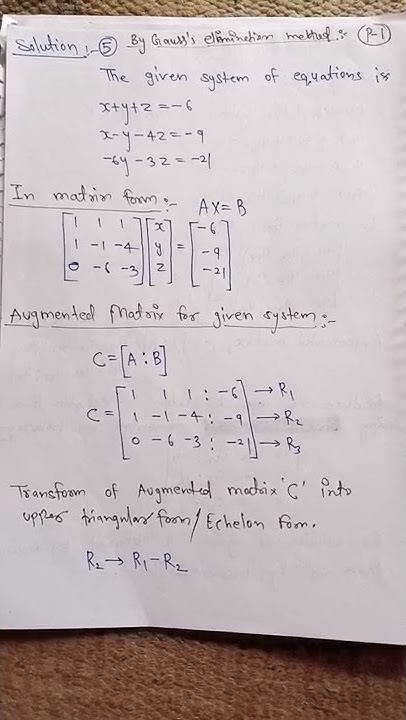 Solution :- (5) By Gauss's elimination method :- (P-1)
The given system of equations is
x+y+z = -6
x-y-4z = -9
-6y-3z = -21
In matrix form :- AX = B
[1 1 1] [x] = [-6]
[1 -1 -4] [y] [-9]
[0 -6 -3] [z] [-21]
Augmented Matrix for given system :-
C = [A : B]
C = [1 1 1 : -6] → R1
[1 -1 -4 : -9] → R2
[0 -6 -3 : -21] → R3
Transform of Augmented matrix 'C' into
upper triangular form / Echelon form.
R2 → R1 - R2